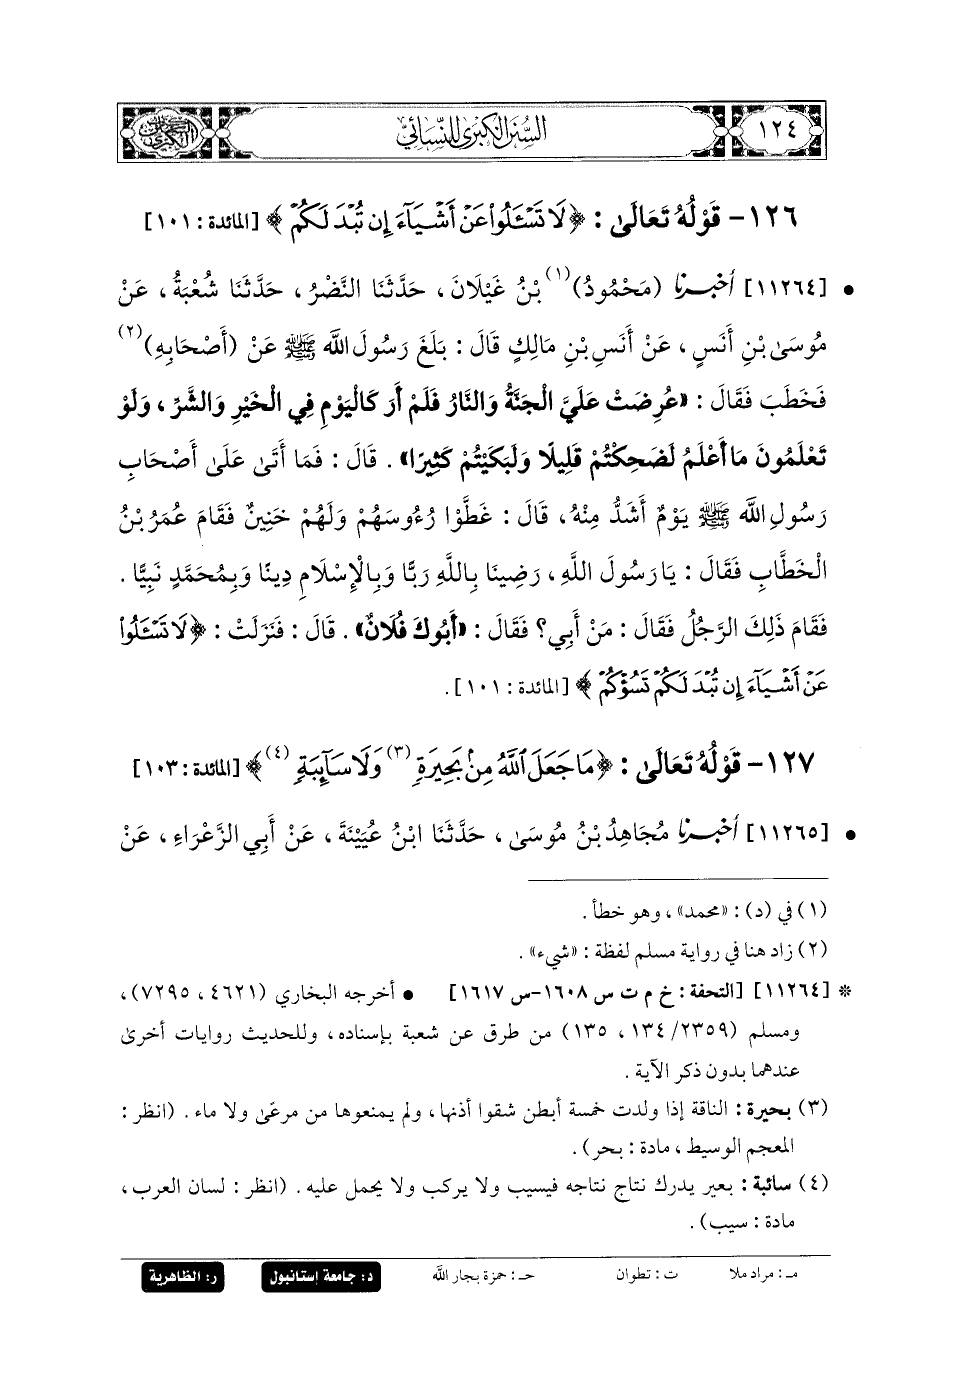 ١٢٤
السنن الكبرى للنسائي
١٢٦- قَوْلُهُ تَعَالَىٰ : ﴿ لَا تَسْـَٔلُوا۟ عَنْ أَشْيَآءَ إِن تُبْدَ لَكُمْ ﴾ [المائدة : ١٠١]
• [١١٢٦٤] أخبرنا (مَحْمُودُ)(١) بْنُ غَيْلَانَ ، حَدَّثَنَا النَّضْرُ ، حَدَّثَنَا شُعْبَةُ ، عَنْ
مُوسَىٰ بْنِ أَنَسٍ ، عَنْ أَنَسِ بْنِ مَالِكٍ قَالَ : بَلَغَ رَسُولَ اللَّه ﷺ عَنْ (أَصْحَابِهِ)(٢)
فَخَطَبَ فَقَالَ : «عُرِضَتْ عَلَيَّ الْجَنَّةُ وَالنَّارُ فَلَمْ أَرَ كَالْيَوْمِ فِي الْخَيْرِ وَالشَّرِّ ، وَلَوْ
تَعْلَمُونَ مَا أَعْلَمُ لَضَحِكْتُمْ قَلِيلًا وَلَبَكَيْتُمْ كَثِيرًا» . قَالَ : فَمَا أَتَىٰ عَلَىٰ أَصْحَابِ
رَسُولِ اللَّه ﷺ يَوْمٌ أَشَدُّ مِنْهُ ، قَالَ : غَطَّوْا رُءُوسَهُمْ وَلَهُمْ خَنِينٌ فَقَامَ عُمَرُ بْنُ
الْخَطَّابِ فَقَالَ : يَا رَسُولَ اللَّهِ ، رَضِينَا بِاللَّهِ رَبًّا وَبِالْإِسْلَامِ دِينًا وَبِمُحَمَّدٍ نَبِيًّا .
فَقَامَ ذَلِكَ الرَّجُلُ فَقَالَ : مَنْ أَبِي؟ فَقَالَ : «أَبُوكَ فُلَانٌ» . قَالَ : فَنَزَلَتْ : ﴿ لَا تَسْـَٔلُوا۟
عَنْ أَشْيَآءَ إِن تُبْدَ لَكُمْ تَسُؤْكُمْ ﴾ [المائدة : ١٠١] .
١٢٧- قَوْلُهُ تَعَالَىٰ : ﴿ مَا جَعَلَ ٱللَّهُ مِنۢ بَحِيرَةٍ (٣) وَلَا سَآئِبَةٍ (٤) ﴾ [المائدة : ١٠٣]
• [١١٢٦٥] أخبرنا مُجَاهِدُ بْنُ مُوسَىٰ ، حَدَّثَنَا ابْنُ عُيَيْنَةَ ، عَنْ أَبِي الزَّعْرَاءِ ، عَنْ
(١) في (د) : «محمد» ، وهو خطأ .
(٢) زاد هنا في رواية مسلم لفظة : «شيء» .
* [١١٢٦٤] [التحفة : خ م ت س ١٦٠٨-س ١٦١٧] • أخرجه البخاري (٤٦٢١ ، ٧٢٩٥) ،
ومسلم (١٣٤/٢٣٥٩ ، ١٣٥) من طرق عن شعبة بإسناده ، وللحديث روايات أخرىٰ
عندهما بدون ذكر الآية .
(٣) بحيرة : الناقة إذا ولدت خمسة أبطن شقوا أذنها ، ولم يمنعوها من مرعَىٰ ولا ماء . (انظر :
المعجم الوسيط ، مادة : بحر) .
(٤) سائبة : بعير يدرك نتاج نتاجه فيسيب ولا يركب ولا يحمل عليه . (انظر : لسان العرب ،
مادة : سيب) .
مـ : مراد ملا ت : تطوان حـ : حمزة بجار الله د : جامعة إستانبول ر : الظاهرية